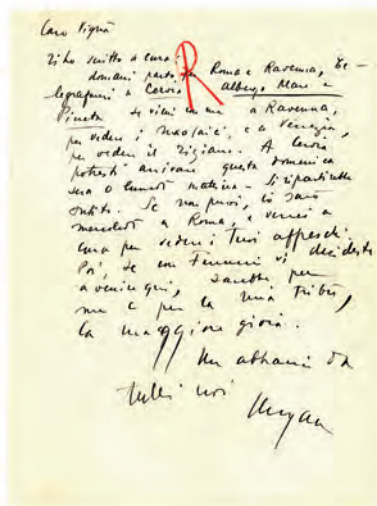 Caro Pignà
ti ho scritto a casa:
R
domani parto per Roma e Ravenna, Te-
legrafami a Cervia Albergo Mare e
Pineta se vieni con me a Ravenna,
per vedere i mosaici, e a Venezia,
per vedere il Tiziano. A Cervia
potresti arrivare questa domenica
sera o lunedì mattina - Si ripartirebbe
subito. Se non puoi, io sarò
mercoledì a Roma, e verrei a
casa per vedere i tuoi affreschi.
Poi, se con vi decideste
a venire qui, sarebbe per
me e per la mia tribù,
la maggiore gioia.
Un abbraccio da
tutti noi